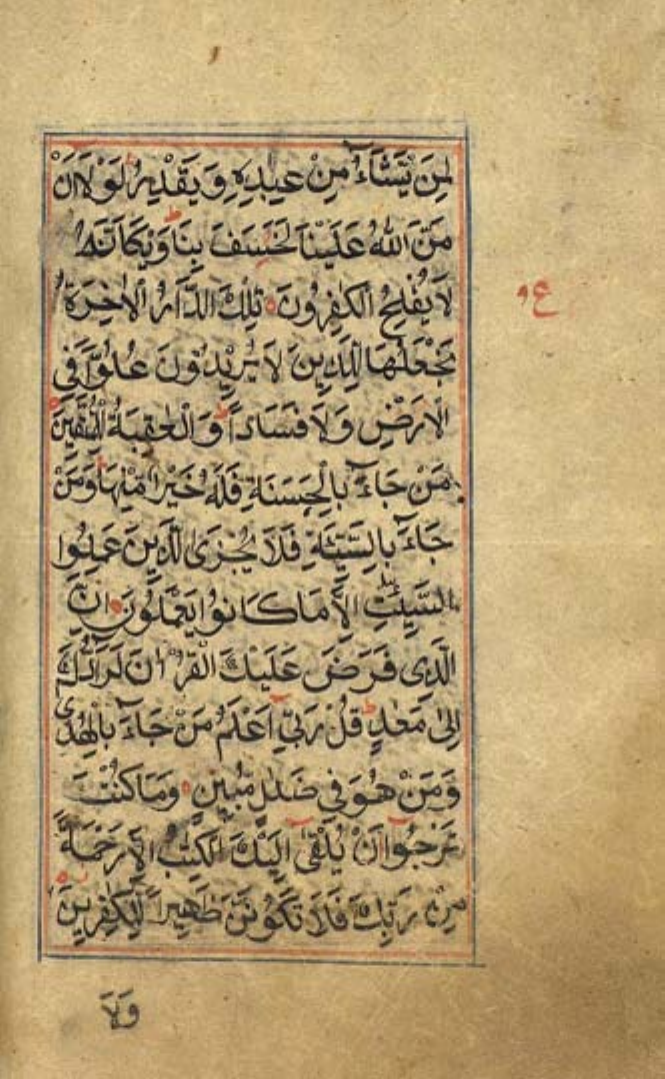 لِمَنْ يَّشَآءُ مِنْ عِبَادِهٖ وَيَقْدِرُ لَوْلَآ اَنْ
مَّنَّ اللّٰهُ عَلَيْنَا لَخَسَفَ بِنَا وَيْكَاَنَّهٗ
لَا يُفْلِحُ الْكٰفِرُوْنَ تِلْكَ الدَّارُ الْاٰخِرَةُ
نَجْعَلُهَا لِلَّذِيْنَ لَا يُرِيْدُوْنَ عُلُوًّا فِى
الْاَرْضِ وَلَا فَسَادًا وَالْعٰقِبَةُ لِلْمُتَّقِيْنَ
مَنْ جَآءَ بِالْحَسَنَةِ فَلَهٗ خَيْرٌ مِّنْهَا وَمَنْ
جَآءَ بِالسَّيِّئَةِ فَلَا يُجْزَى الَّذِيْنَ عَمِلُوا
السَّيِّاٰتِ اِلَّا مَا كَانُوْا يَعْمَلُوْنَ اِنَّ
الَّذِى فَرَضَ عَلَيْكَ الْقُرْاٰنَ لَرَآدُّكَ
اِلٰى مَعَادٍ قُلْ رَّبِّىْ اَعْلَمُ مَنْ جَآءَ بِالْهُدٰى
وَمَنْ هُوَ فِى ضَلٰلٍ مُّبِيْنٍ وَمَا كُنْتَ
تَرْجُوْا اَنْ يُّلْقٰٓى اِلَيْكَ الْكِتٰبُ اِلَّا رَحْمَةً
مِّنْ رَّبِّكَ فَلَا تَكُوْنَنَّ ظَهِيْرًا لِّلْكٰفِرِيْنَ
ع
وَلَا